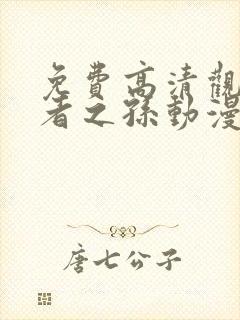 免費高清觀
者之孫動漫
唐七公子